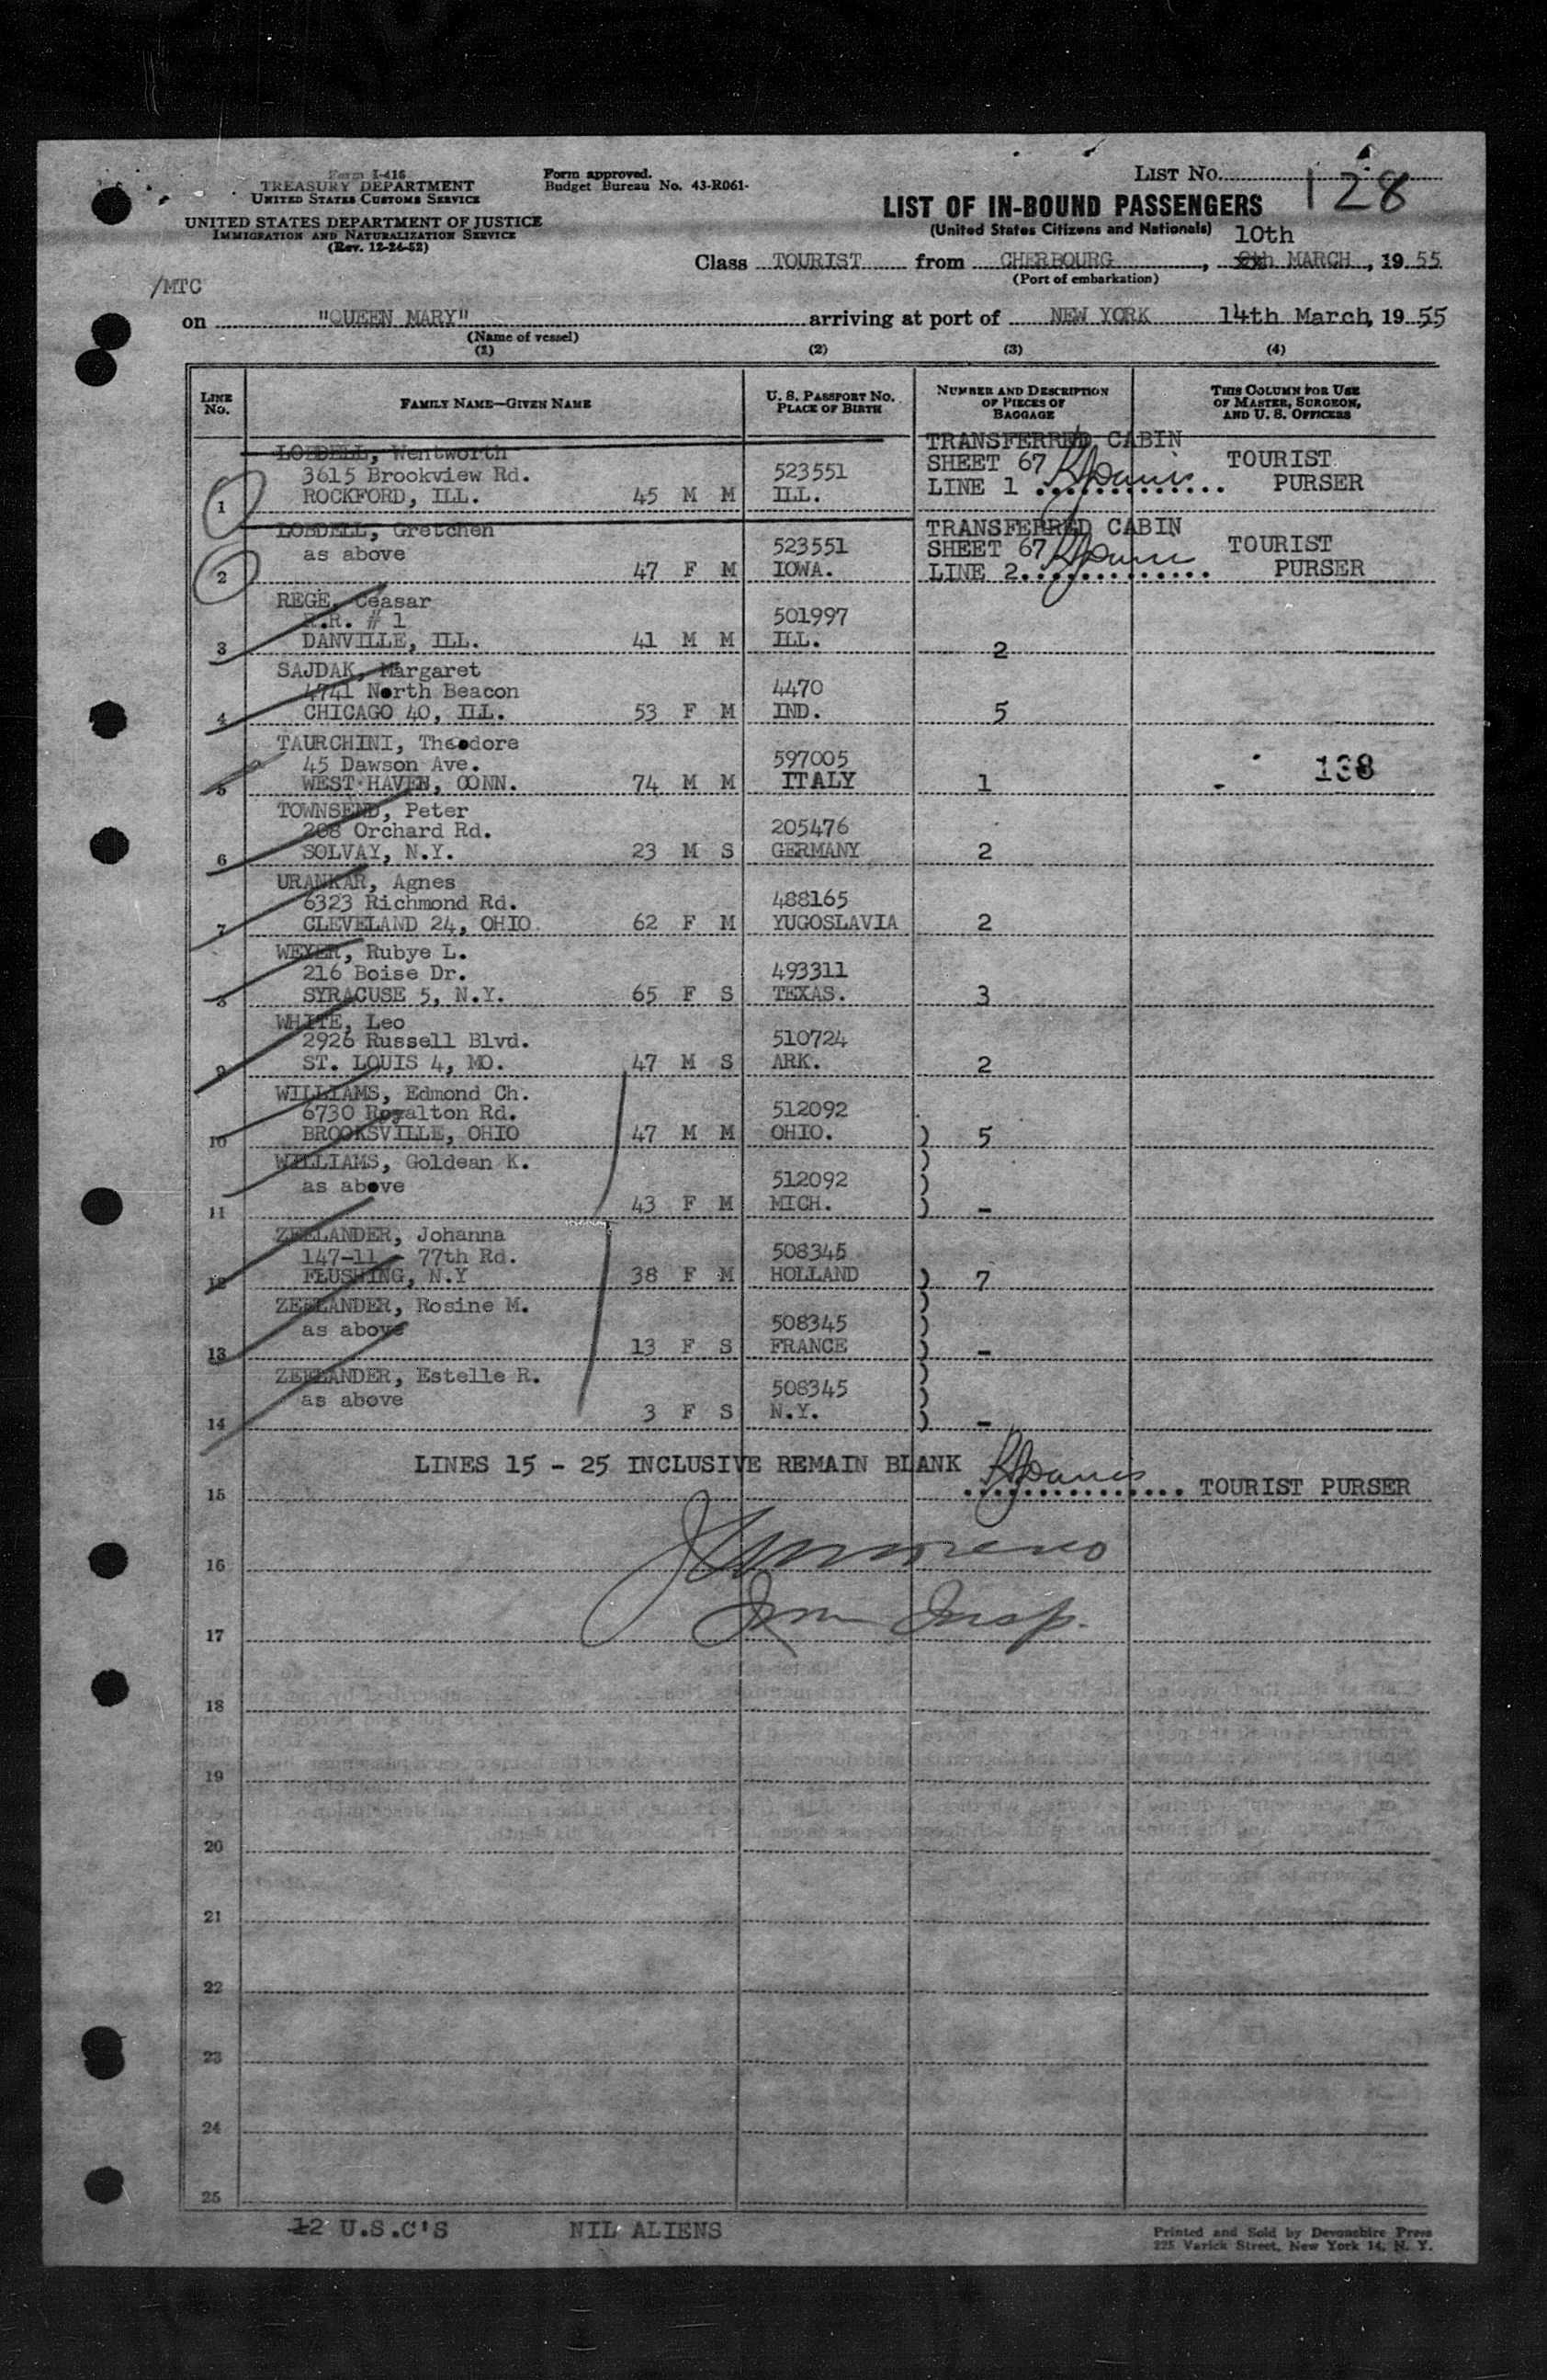 Form I-416
TREASURY DEPARTMENT
UNITED STATES CUSTOMS SERVICE
UNITED STATES DEPARTMENT OF JUSTICE
IMMIGRATION AND NATURALIZATION SERVICE
(Rev. 12-24-52)
Form approved.
Budget Bureau No. 43-R061-
LIST No. 128
LIST OF IN-BOUND PASSENGERS
(United States Citizens and Nationals)
10th
Class TOURIST from CHERBOURG, MARCH, 19 55
(Port of embarkation)
/MTC
on "QUEEN MARY" arriving at port of NEW YORK 14th March, 19 55
(Name of vessel)
(1) (2) (3) (4)
LINE No. FAMILY NAME—GIVEN NAME U. S. PASSPORT No. PLACE OF BIRTH NUMBER AND DESCRIPTION OF PIECES OF BAGGAGE THIS COLUMN FOR USE OF MASTER, SURGEON, AND U. S. OFFICERS
LOBDELL, Wentworth TRANSFERRED CABIN
3615 Brookview Rd. 523551 SHEET 67 TOURIST
1 ROCKFORD, ILL. 45 M M ILL. LINE 1 PURSER
LOBDELL, Gretchen TRANSFERRED CABIN
as above 523551 SHEET 67 TOURIST
2 47 F M IOWA. LINE 2 PURSER
REGE, Ceasar
R.R. # 1 501997
3 DANVILLE, ILL. 41 M M ILL. 2
SAJDAK, Margaret
4741 North Beacon 4470
4 CHICAGO 40, ILL. 53 F M IND. 5
TAURCHINI, Theodore
45 Dawson Ave. 597005 138
5 WEST HAVEN, CONN. 74 M M ITALY 1 -
TOWNSEND, Peter
208 Orchard Rd. 205476
6 SOLVAY, N.Y. 23 M S GERMANY 2
URANKAR, Agnes
6323 Richmond Rd. 488165
7 CLEVELAND 24, OHIO. 62 F M YUGOSLAVIA 2
WEYER, Rubye L.
216 Boise Dr. 493311
8 SYRACUSE 5, N.Y. 65 F S TEXAS. 3
WHITE, Leo
2926 Russell Blvd. 510724
9 ST. LOUIS 4, MO. 47 M S ARK. 2
WILLIAMS, Edmond Ch.
6730 Royalton Rd. 512092
10 BROOKSVILLE, OHIO 47 M M OHIO. ) 5
WILLIAMS, Goldean K. )
as above 512092 )
11 43 F M MICH. ) -
ZEELANDER, Johanna
147-11 - 77th Rd. 508345
12 FLUSHING, N.Y 38 F M HOLLAND ) 7
ZEELANDER, Rosine M. )
as above 508345 )
13 13 F S FRANCE ) -
ZEELANDER, Estelle R. )
as above 508345 )
14 3 F S N.Y. ) -
LINES 15 - 25 INCLUSIVE REMAIN BLANK
15 TOURIST PURSER
16
Imm Insp.
17
18
19
20
21
22
23
24
25
12 U.S.C'S NIL ALIENS
Printed and Sold by Devonshire Press
225 Varick Street, New York 14, N. Y.